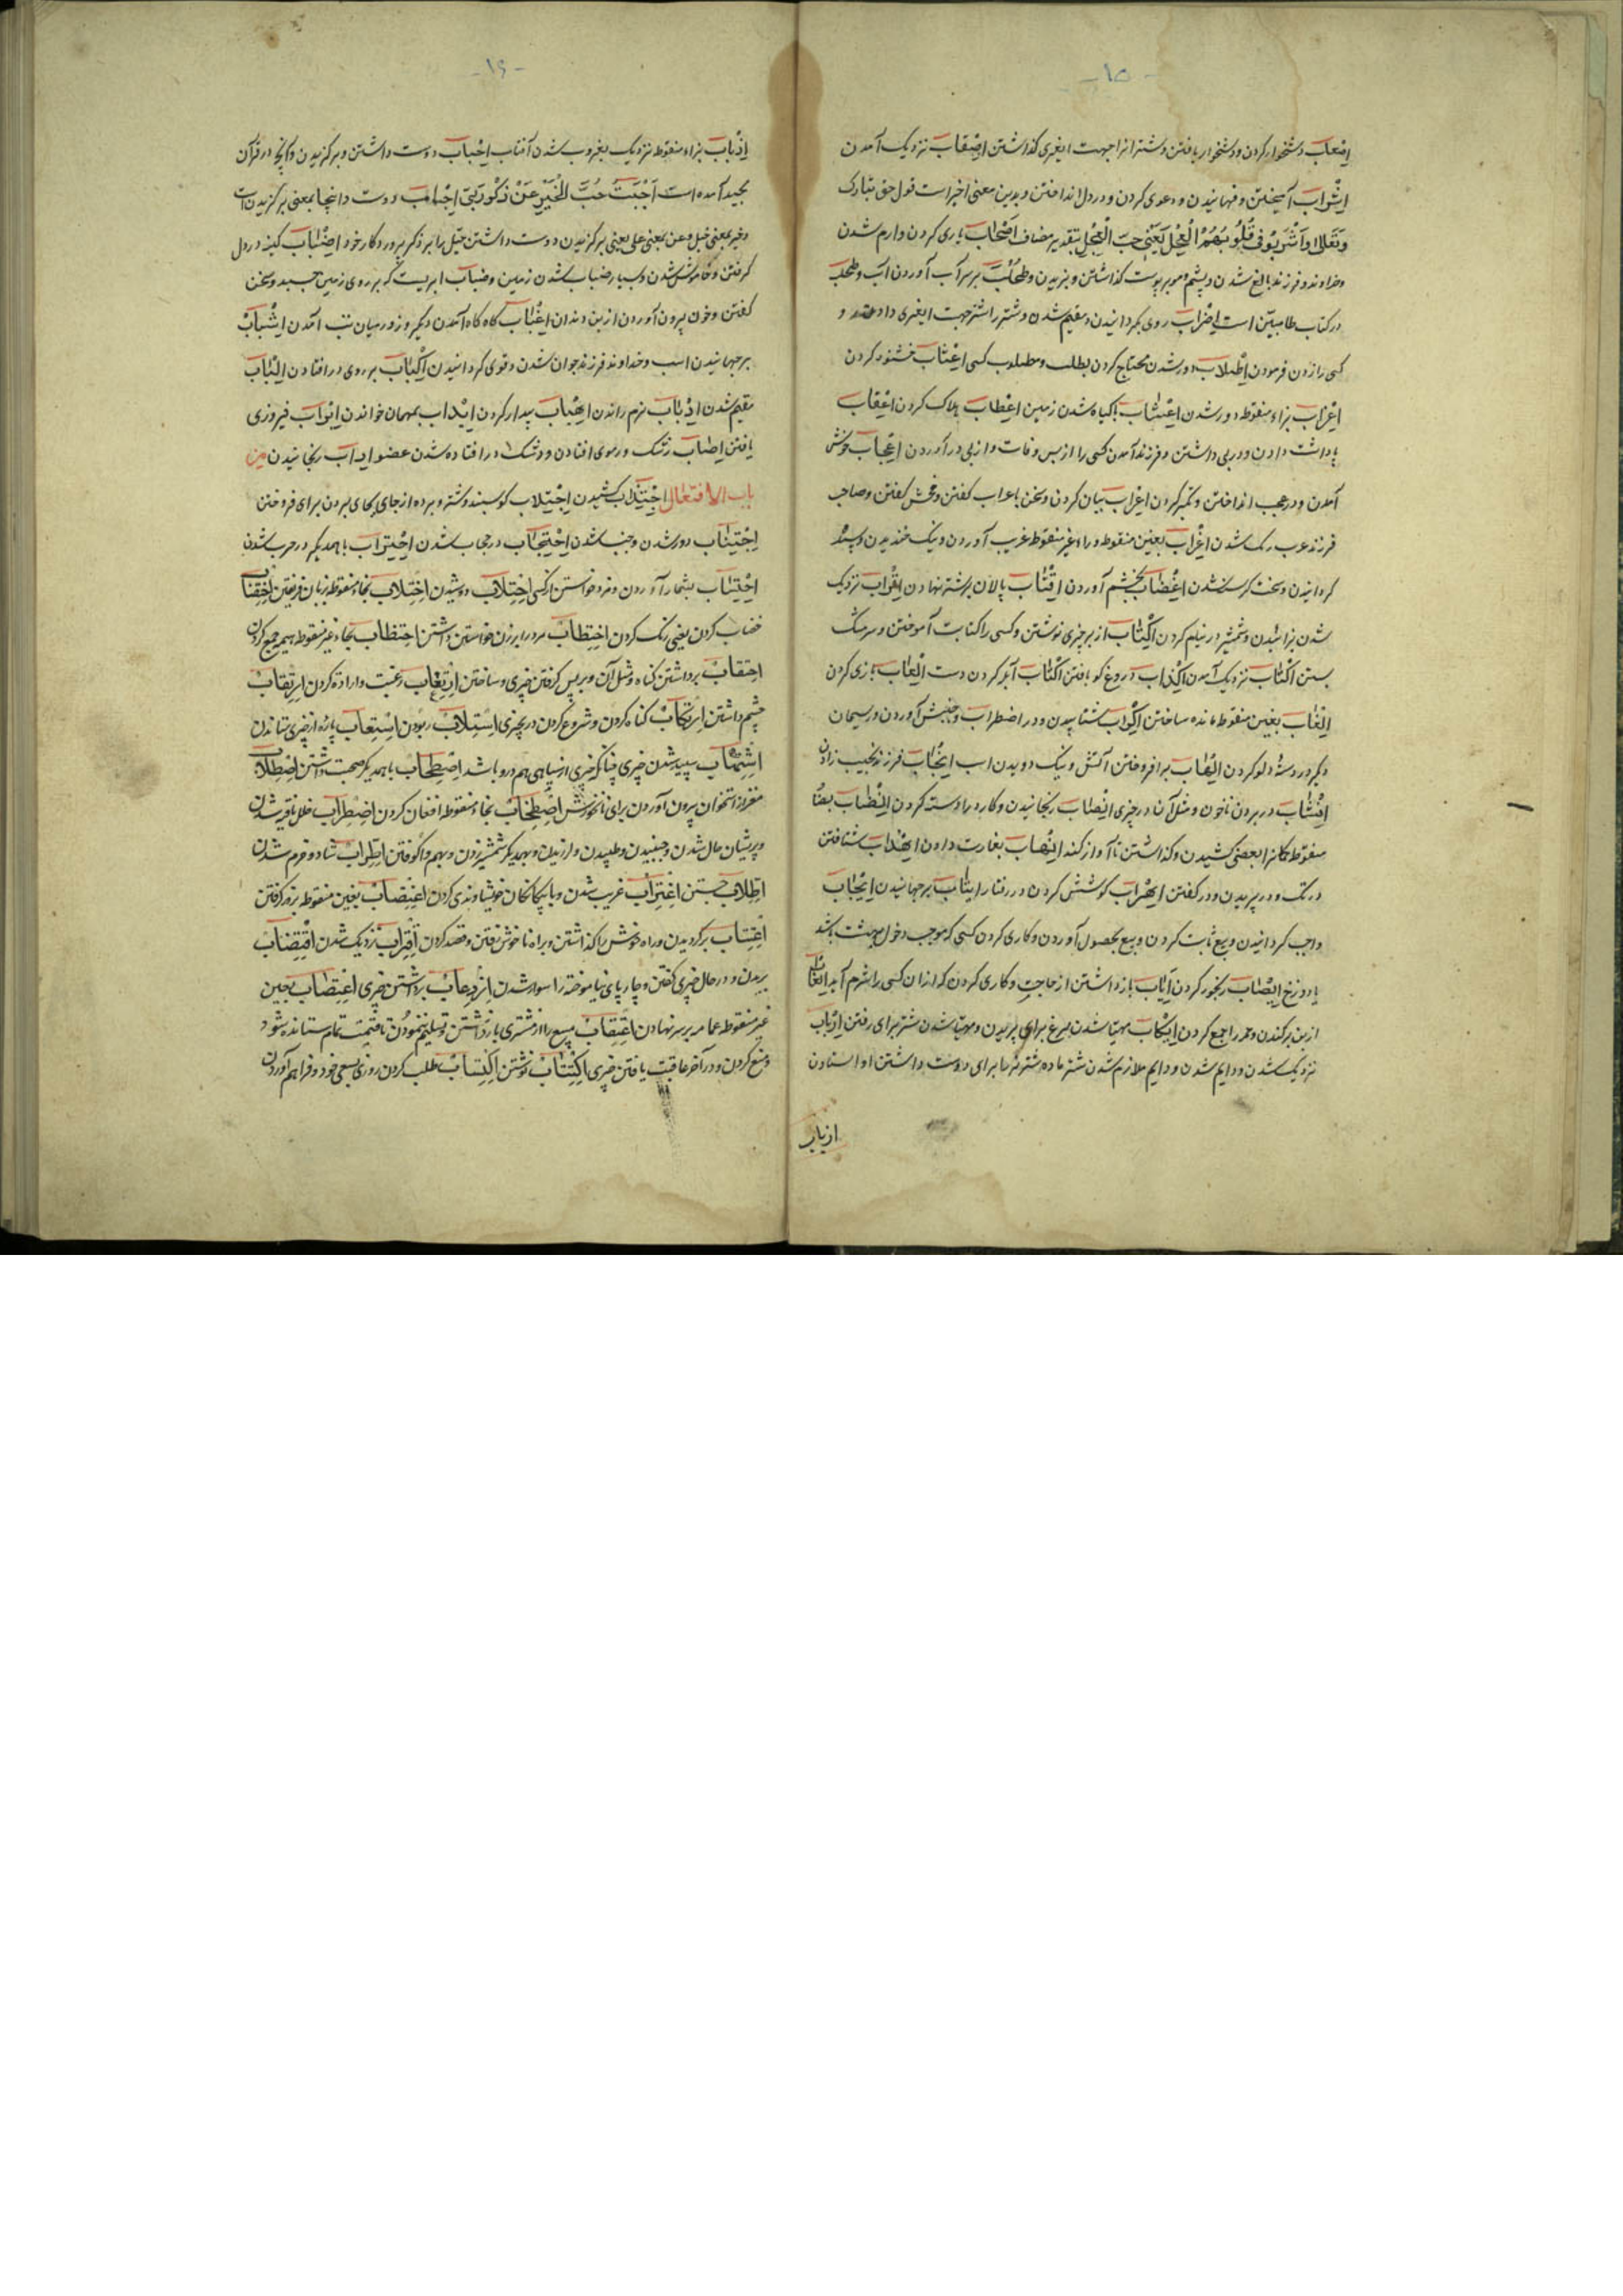 -۱۵-
اصعاب دشخوار کردن و دشخوار یافتن و شتر را از جهت ایغری گذاشتن اصقاب نزدیک آمدن
اشراب آمیختن و فهمانیدن و دعوی کردن و در دل انداختن و بدین معنی اخیر است قول حق تبارک
وتعالی واشربوا فی قلوبهم العجل یعنی حب العجل بتقدیر مضاف اصحاب یاری کردن و رام شدن
و خداوند فرزند بالغ شدن و پشم و مو بر پوست گذاشتن و بزیدن و طحلب بر سر آب آوردن آب و طحلب
در کتاب طا مبین است اضراب روی بگردانیدن و مقیم شدن و شتر را شتر جهت ایغری دادن و
کسی را زدن فرمودن اطلاب دور شدن محتاج کردن بطلب و مطلوب کسی اعتاب خشنود کردن
اعزاب بزاء منقوطه دور شدن اعشاب با گیاه شدن زمین اعطاب هلاک کردن اعقاب
پاداشت دادن و در پی داشتن و فرزند آمدن کسی را از پس وفات و از پی در آوردن اعجاب خوش
آمدن و در عجب انداختن و تکبر کردن اعراب بیان کردن و سخن با عراب گفتن و فحش گفتن و صاحب
فرزند عرب رنگ شدن اغراب بغین منقوطه و راء غیر منقوطه غریب آوردن و نیک خندیدن و سپید
گردانیدن و سخت گرسنه شدن اغضاب بخشم آوردن اقتاب پالان بر شتر نهادن اقراب نزدیک
شدن بزائیدن و شمشیر در نیام کردن اکتاب از بر چیزی نوشتن و کسی را کتابت آموختن و سر مشک
بستن اکثاب نزدیک آمدن اکذاب دروغ گو یافتن اکناب آبله کردن دست العاب بازی کردن
الغاب بغین منقوطه مانده ساختن اکراب شتابیدن و در اضطراب و جنبش آوردن و ریسمان
دیگر در دسته دلو کردن الهاب برافروختن آتش و نیک دویدن اسب انجاب فرزند نجیب زادن
انشاب در بردن ناخن و مثل آن در چیزی انصاب رنجانیدن و کارد را دسته کردن انضاب بضاد
منقوطه کمانرا بعضی کشیدن و گذاشتن تا آواز کند انهاب بغارت دادن اهذاب شتافتن
در تک و در پریدن و در گفتن اهراب کوشش کردن در رفتار ایثاب بر جهانیدن ایجاب
واجب گردانیدن و بیع ثابت کردن و بیع بحصول آوردن و کاری کردن کسی که موجب دخول بهشت باشد
یا دوزخ ایصاب رنجور کردن ایاب بازداشتن از حاجت و کاری کردن که از آن کسی را شرم آید ایعاب
از بن بر کندن و همه را جمع کردن ایکاب مهیا شدن مرغ برای پریدن و مهیا شدن شتر برای رفتن ارباب
نزدیک شدن و دایم شدن و دایم ملازم شدن شتر ماده شتر نر را برای دوست داشتن او استادن
ازباب
-۱۶-
ازباب بزاء منقوطه نزدیک بغروب شدن آفتاب احباب دوست داشتن و برگزیدن و آنچه در قرآن
مجید آمده است احببت حب الخیر عن ذکر ربی احباب دوست داینجا بمعنی برگزیدن است
و خیر بمعنی خیل و عن بمعنی علی یعنی برگزیدن دوست داشتن خیل را بر ذکر پروردگار خود اضباب کینه در دل
گرفتن و خاموش شدن و بسیار ضباب شدن زمین و ضباب ابریست که بر روی زمین چسبد و سخن
گفتن و خون بیرون آوردن از بن دندان اغباب گاه گاه آمدن و یک روز در میان تب آمدن اشباب
بر جهانیدن اسب و خداوند فرزند جوان شدن و قوی گردانیدن اکباب بر روی در افتادن الباب
مقیم شدن اذباب نرم راندن اهباب بیدار کردن ایداب بمهمان خواندن اثواب فیروزی
یافتن اصاب رشک در موی افتادن و رشک در افتاده شدن عضو ایداب رنجانیدن من
باب الافتعال اجتذاب کشیدن اجتلاب گوسپند و شتر و برده از جای بجای بردن برای فروختن
اجتناب دور شدن و جنب شدن احتجاب در حجاب شدن احتراب با همدیگر در حرب شدن
احتساب بشمار آوردن و مزد خواستن از کسی احتلاب دوشیدن اختلاب بخاء منقوطه بزبان فریفتن اختضاب
خضاب کردن یعنی رنگ کردن اختطاب مرد را بزن خواستن داشتن احتطاب بحاء غیر منقوطه هیمه جمع کردن
احتقاب برداشتن گناه و مثل آن و بر پس گرفتن چیزی و ساختن ارتغاب رغبت و اراده کردن ارتقاب
چشم داشتن ارتکاب گناه کردن و شروع کردن در چیزی استلاب ربودن استعاب پاره از چیزی ستاندن
اشتهاب سپید شدن چیزی چنانکه چیزی از سیاهی هم درو باشد اصطحاب با همدیگر صحبت داشتن اصطلاب
مغز از استخوان بیرون آوردن برای نانخورش اصطخاب بخاء منقوطه افغان کردن اضطراب خلل پذیر شدن
و پریشان حال شدن و جنبیدن و طپیدن و لرزیدن و بهمدیگر شمشیر زدن و بهم واکوفتن اطراب شاد و خرم شدن
اطلاب جستن اغتراب غریب شدن و با بیگانگان خویشاوندی کردن اغتصاب بغین منقوطه بزور گرفتن
اعتتاب برگردیدن و راه خوش را گذاشتن و براه ناخوش رفتن و قصد کردن اقتراب نزدیک شدن اقتضاب
بریدن و در حال چیزی گفتن و چارپای نیاموخته را سوار شدن ازدعاب برداشتن چیزی اعتصاب بعین
غیر منقوطه عمامه بر سر نهادن اعتقاب مبیع را از مشتری باز داشتن و تسلیم ننمودن تا قیمت تمام ستانده شود
و منع کردن و در آخر عاقبت یافتن چیزی اکتتاب نوشتن اکتساب طلب کردن روزی بسعی خود و فراهم آوردن